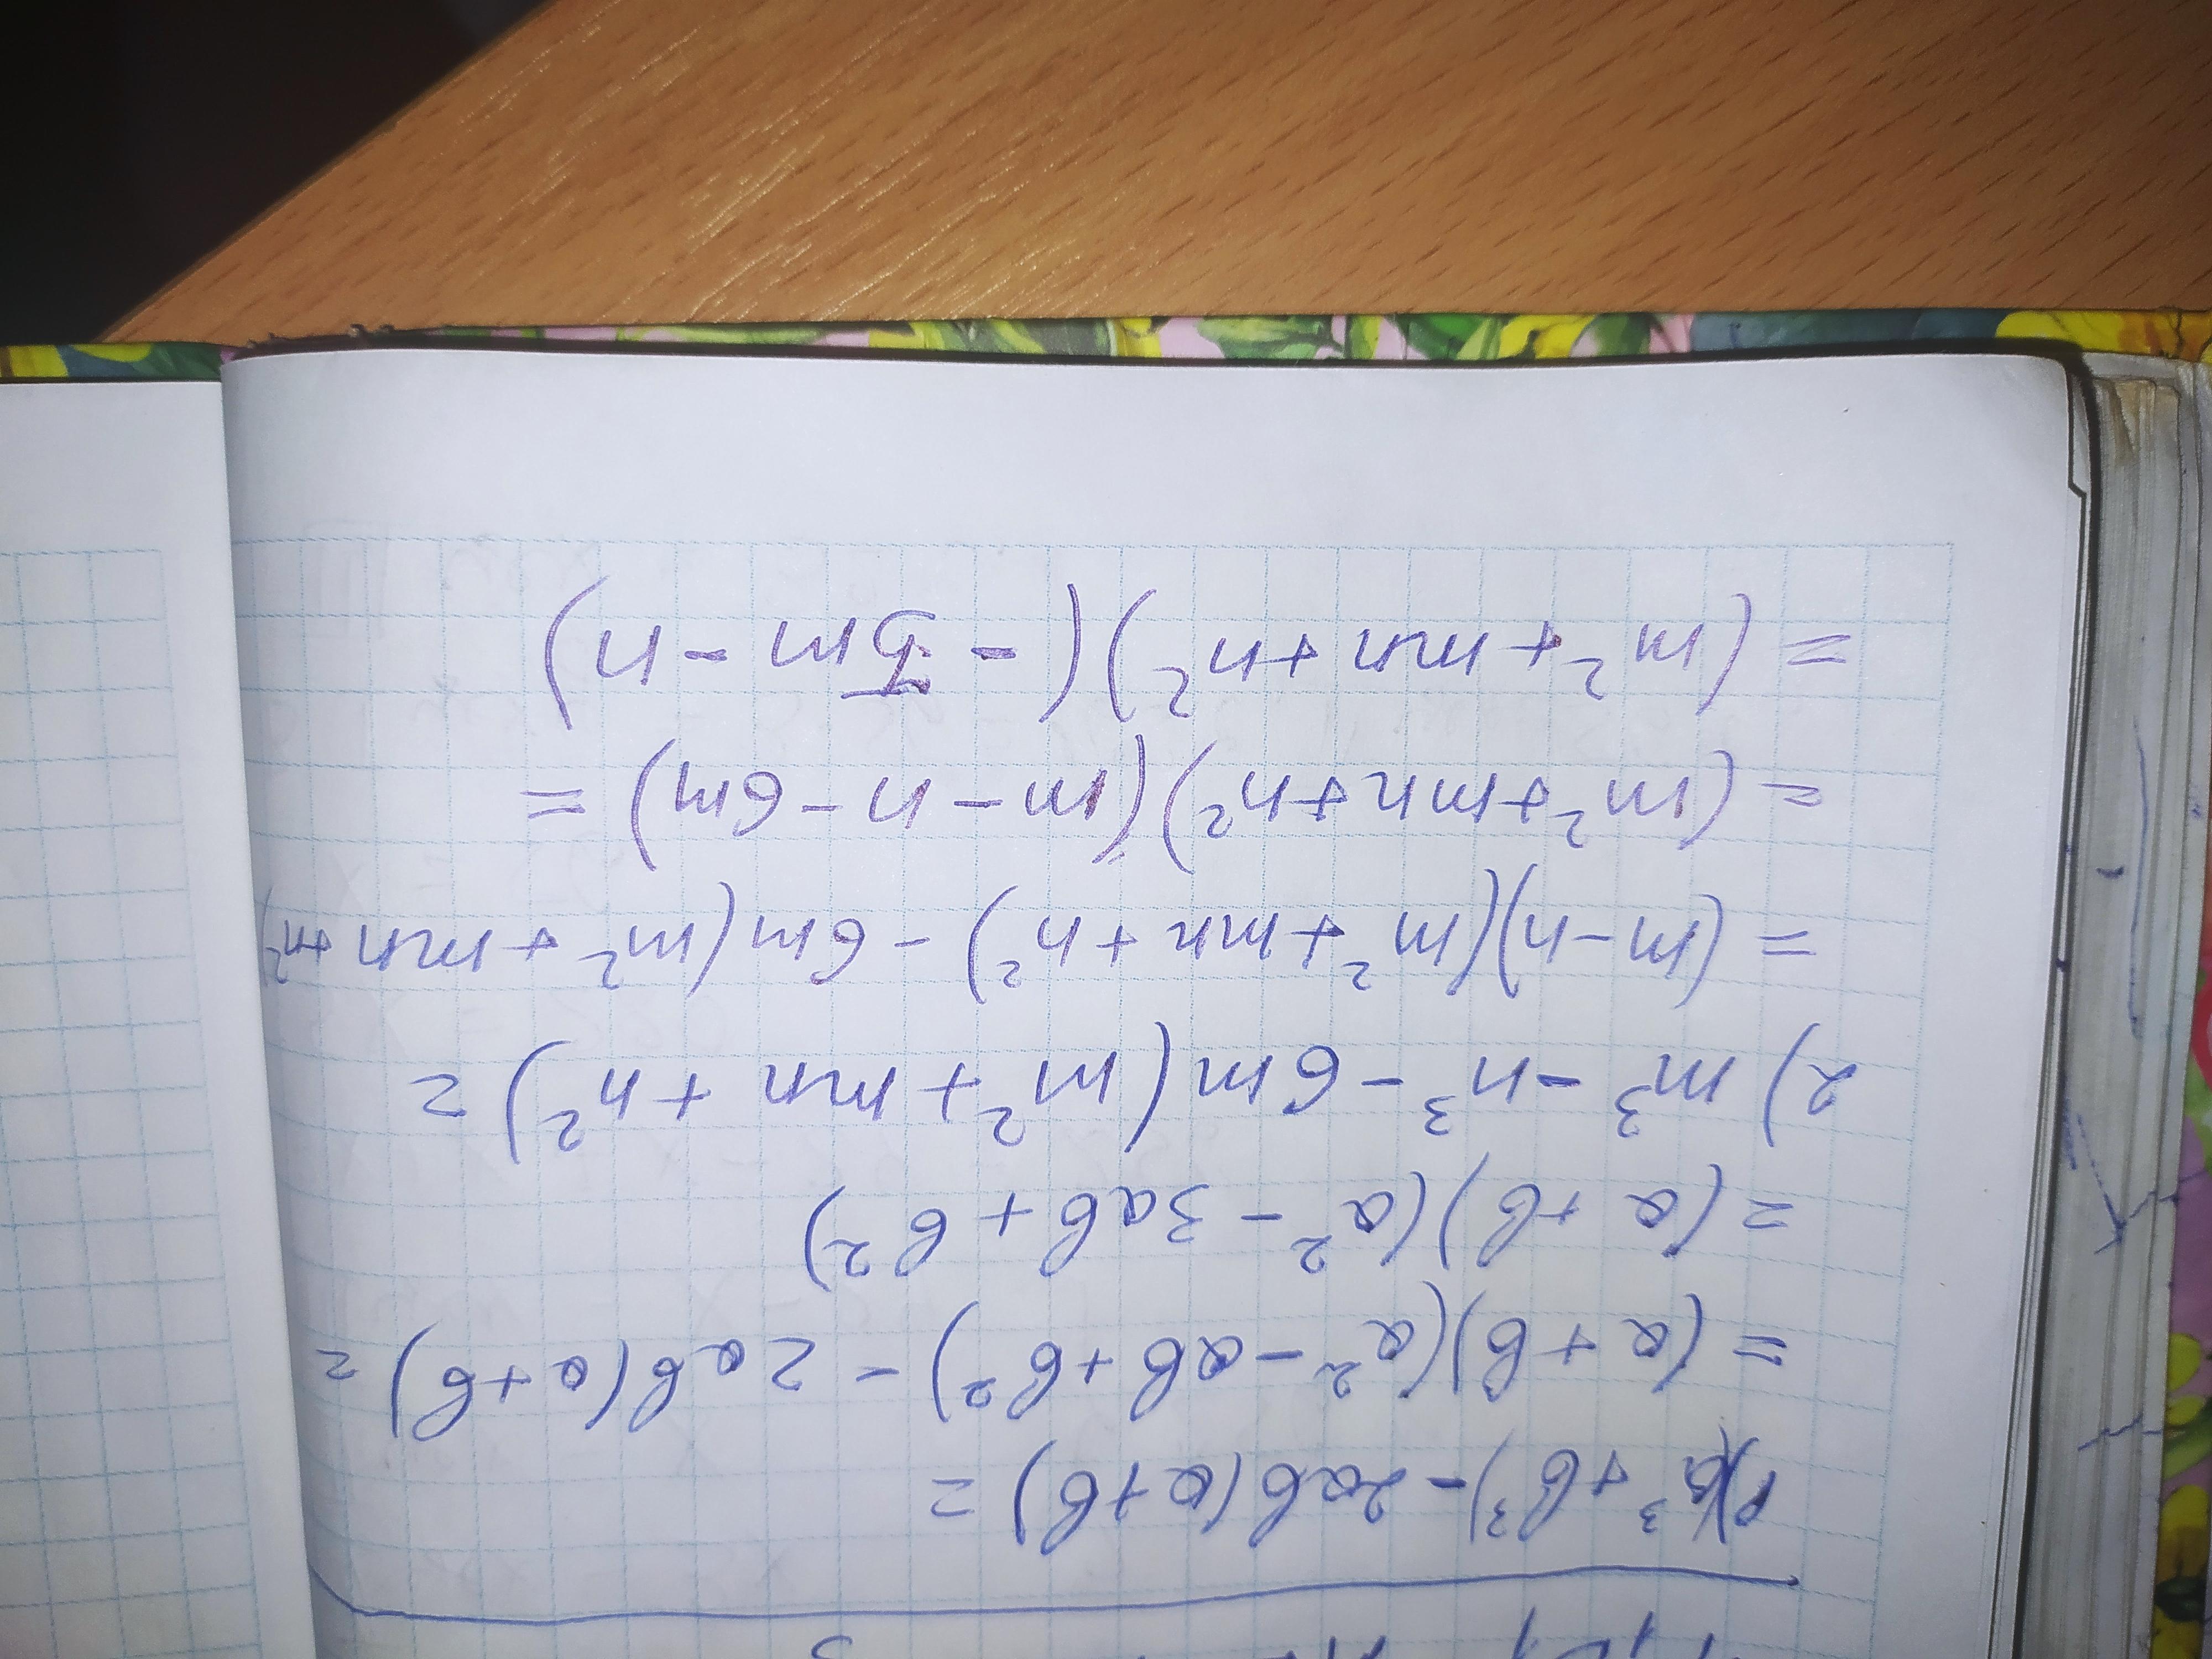 1) (a³ + b³) - 2ab(a+b) =
= (a + b)(a² - ab + b²) - 2ab(a+b) =
= (a + b)(a² - 3ab + b²)
2) m³ - n³ - 6m(m² + mn + n²) =
= (m - n)(m² + mn + n²) - 6m(m² + mn + n²)
= (m² + mn + n²)(m - n - 6m) =
= (m² + mn + n²)(-5m - n)